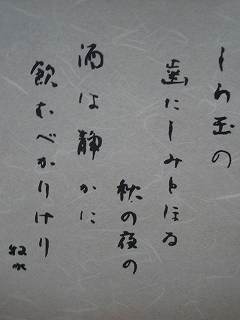 しら玉の
歯にしみとほる
秋の夜の
酒は静かに
飲むべかりけり
牧水